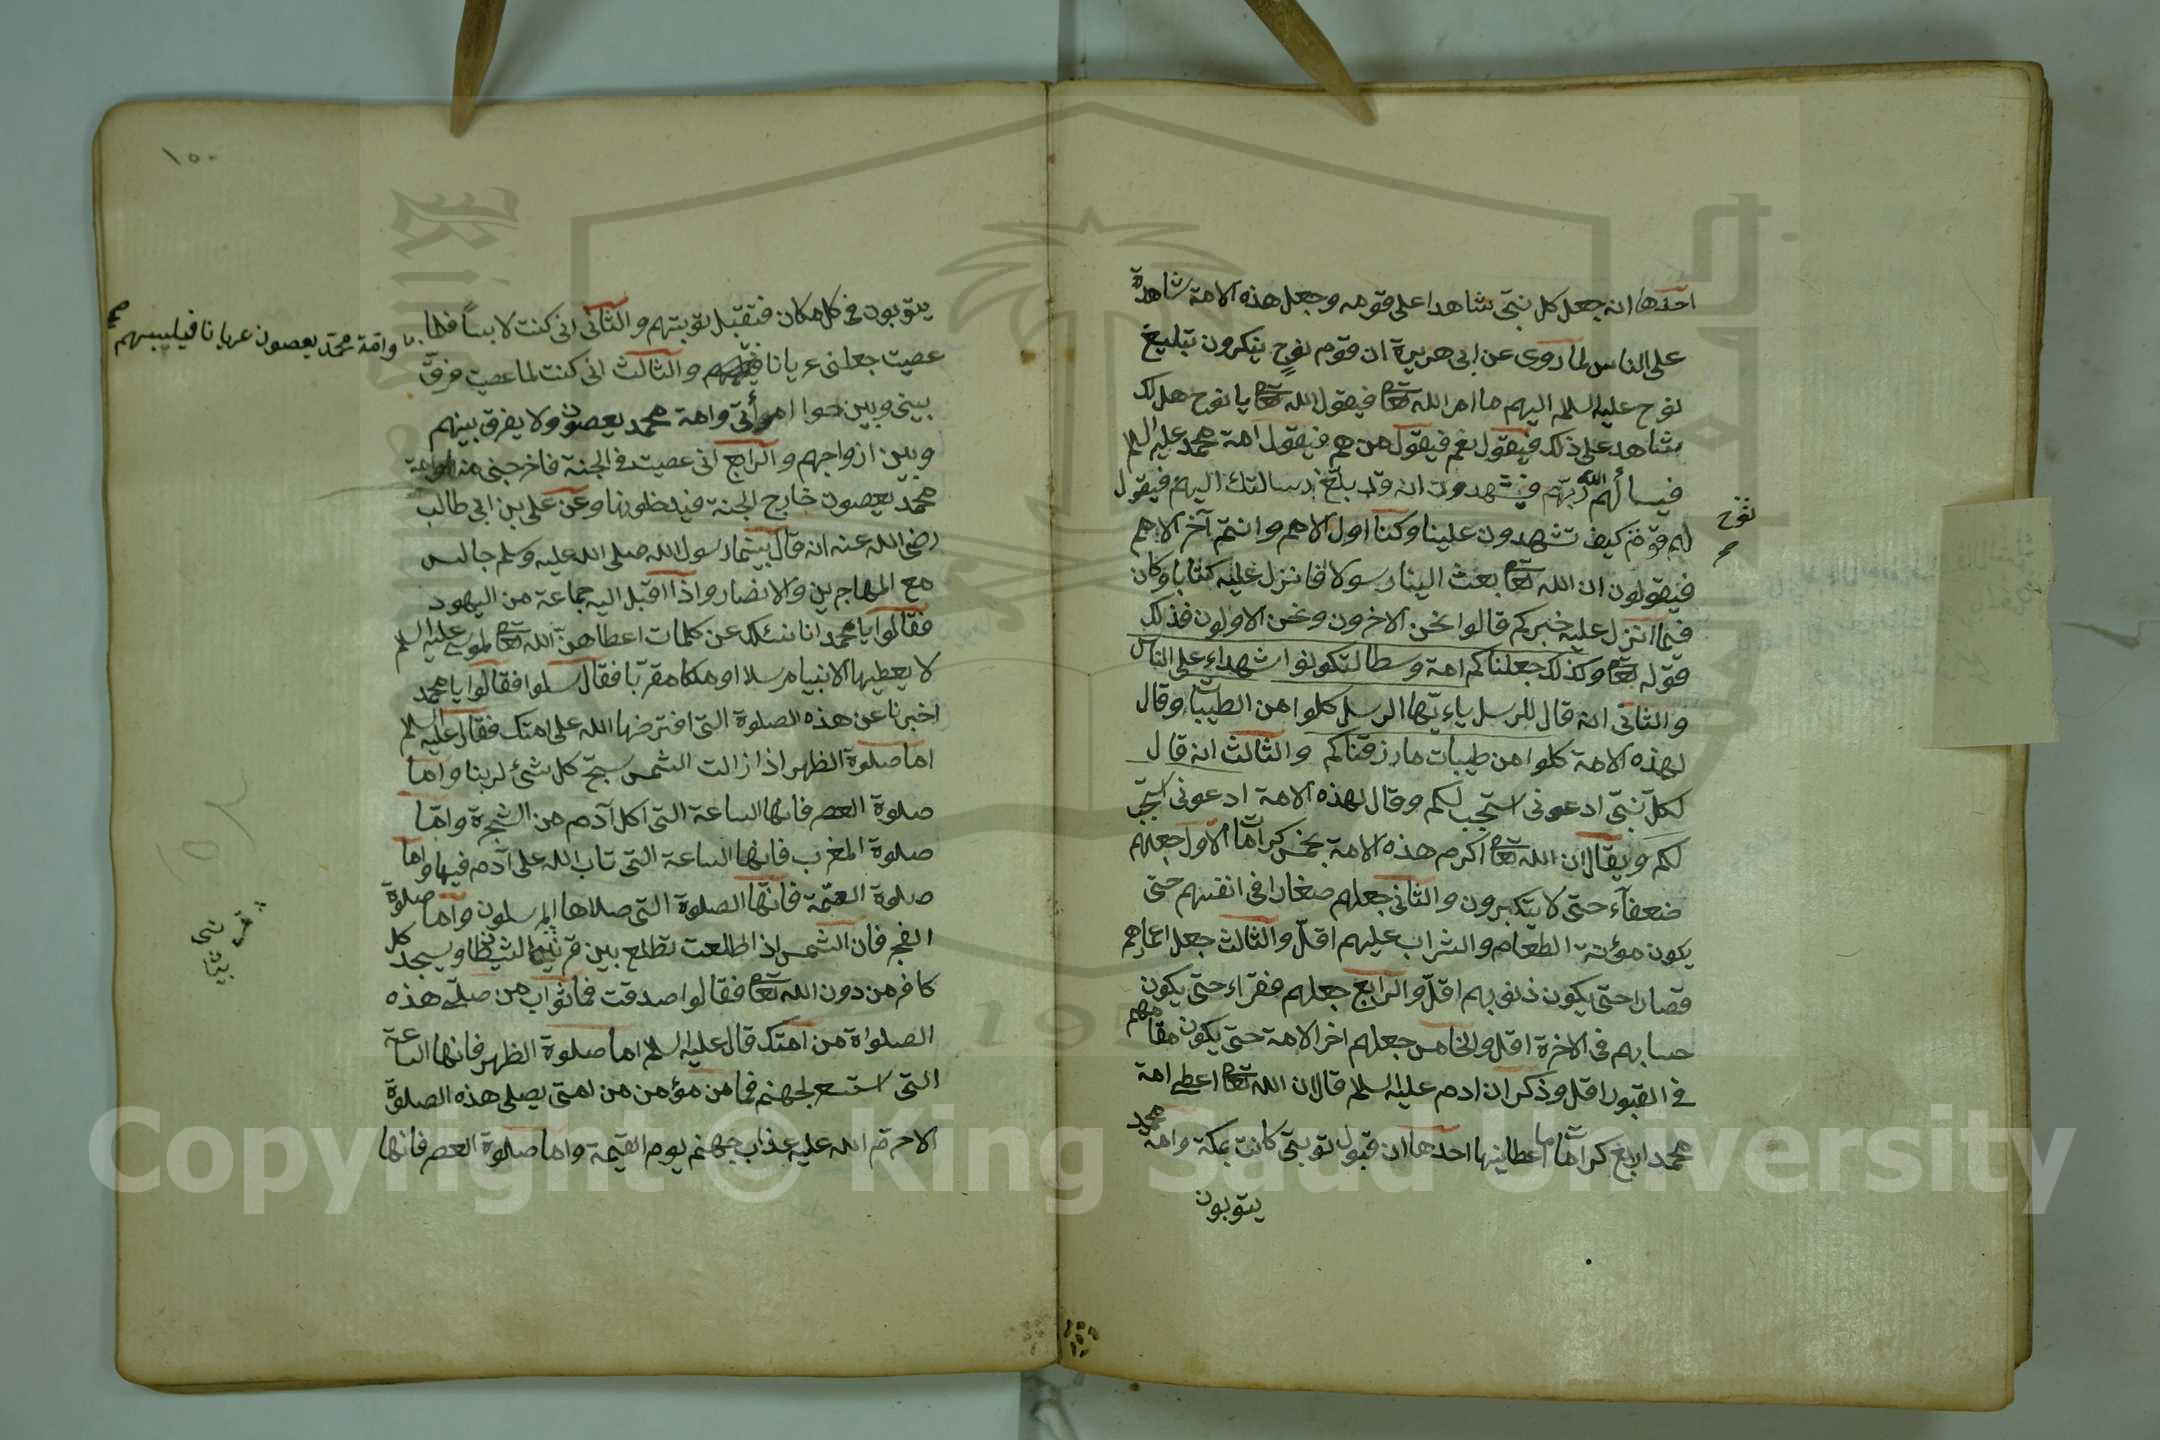 احدها انه جعل كل نبى شاهدا على قومه وجعل هذه الامة شاهدة
على الناس لما روى عن ابى هريرة ان قوم نوح ينكرون تبليغ
نوح عليه السلم اليهم ما امر الله تعا فيقول الله تعا يا نوح هل لك
شاهد على ذلك فيقول نعم فيقول من هم فيقول امة محمد عليه السلم
فيسألهم الله ربهم فيشهدون انه قد بلغ رسالتك اليهم فيقول
لهم قوم كيف تشهدون علينا وكنا اول الامم وانتم آخر الامم
نوح صح
فيقولون ان الله تعا بعث الينا رسولا فانزل عليه كتابا وكان
فيما انزل عليه خبركم قالوا نحن الاخرون ونحن الاولون فذلك
قوله تعا وكذلك جعلناكم امة وسطا لتكونوا شهداء على الناس
والثانى انه قال للرسل ياءيها الرسل كلوا من الطيبات وقال
لهذه الامة كلوا من طيبات ما رزقناكم والثالث انه قال
لكل نبى ادعونى استجب لكم وقال لهذه الامة ادعونى استجب
لكم ويقال ان الله تعا اكرم هذه الامة بخمس كرامات الاول جعلهم
ضعفآء حتى لا يتكبرون والثانى جعلهم صغارا فى انفسهم حتى
يكون مؤنة الطعام والشراب عليهم اقل والثالث جعل اعمارهم
قصارا حتى يكون ذنوبهم اقل والرابع جعلهم فقراء حتى يكون
حسابهم فى الاخرة اقل والخامس جعلهم اخر الامة حتى يكون مقامهم
فى القبور اقل وذكر ان ادم عليه السلم قال ان الله تعا اعطى امة
محمد اربع كرامات ما اعطانيها احدها ان قبول توبتى كانت بمكة وامة محمد
يتوبون
١٥٠
يتوبون فى كل مكان فيقبل توبتهم والثانى انى كنت لابسا فلما
عصيت جعلنى عريانا والثالث انى كنت لما عصيت فرق
وامة محمد يعصون عريانا فيلبسهم صح
بينى وبين حوا امرأتى وامة محمد يعصون ولا يفرق بينهم
وبين ازواجهم والرابع انى عصيت فى الجنة فاخرجنى منها وامة
محمد يعصون خارج الجنة فيدخلونها وعن على بن ابى طالب
رضى الله عنه انه قال بينما رسول الله صلى الله عليه وسلم جالس
مع المهاجرين والانصار واذا اقبل اليه جماعة من اليهود
فقالوا يا محمد انا نسئلك عن كلمات اعطاهن الله تعا لموسى عليه السلم
لا يعطيها الا نبيا مرسلا او ملكا مقربا فقال سلوا فقالوا يا محمد
اخبرنا عن هذه الصلوة التى افترضها الله على امتك فقال عليه السلم
اما صلوة الظهر اذا زالت الشمس سبح كل شئ لربنا واما
صلوة العصر فانها الساعة التى اكل آدم من الشجرة واما
صلوة المغرب فانها الساعة التى تاب الله على آدم فيها واما
صلوة العتمة فانها الصلوة التى صلاها المرسلون واما صلوة
الفجر فان الشمس اذا طلعت تطلع بين قرنى الشيطان ويسجد كل
كافر من دون الله تعا فقالوا صدقت فما ثواب من صلى هذه
الصلواة من امتك قال عليه السلم اما صلوة الظهر فانها الساعة
التى استسعر لجهنم فما من مؤمن من امتى يصلى هذه الصلوة
الا حرم الله عليه عذاب جهنم يوم القيمة واما صلوة العصر فانها
Copyright © King Saud University